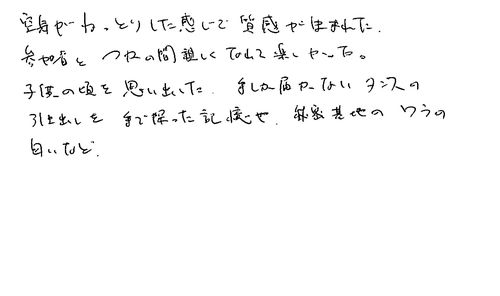 空気がねっとりした感じで質感が生まれた.
参加者とつかの間親しくなれて楽しかった。
子供の頃を思い出した. 手しか届かないタンスの
引き出しを手で探った記憶や. 秘密基地のワラの
匂いなど.